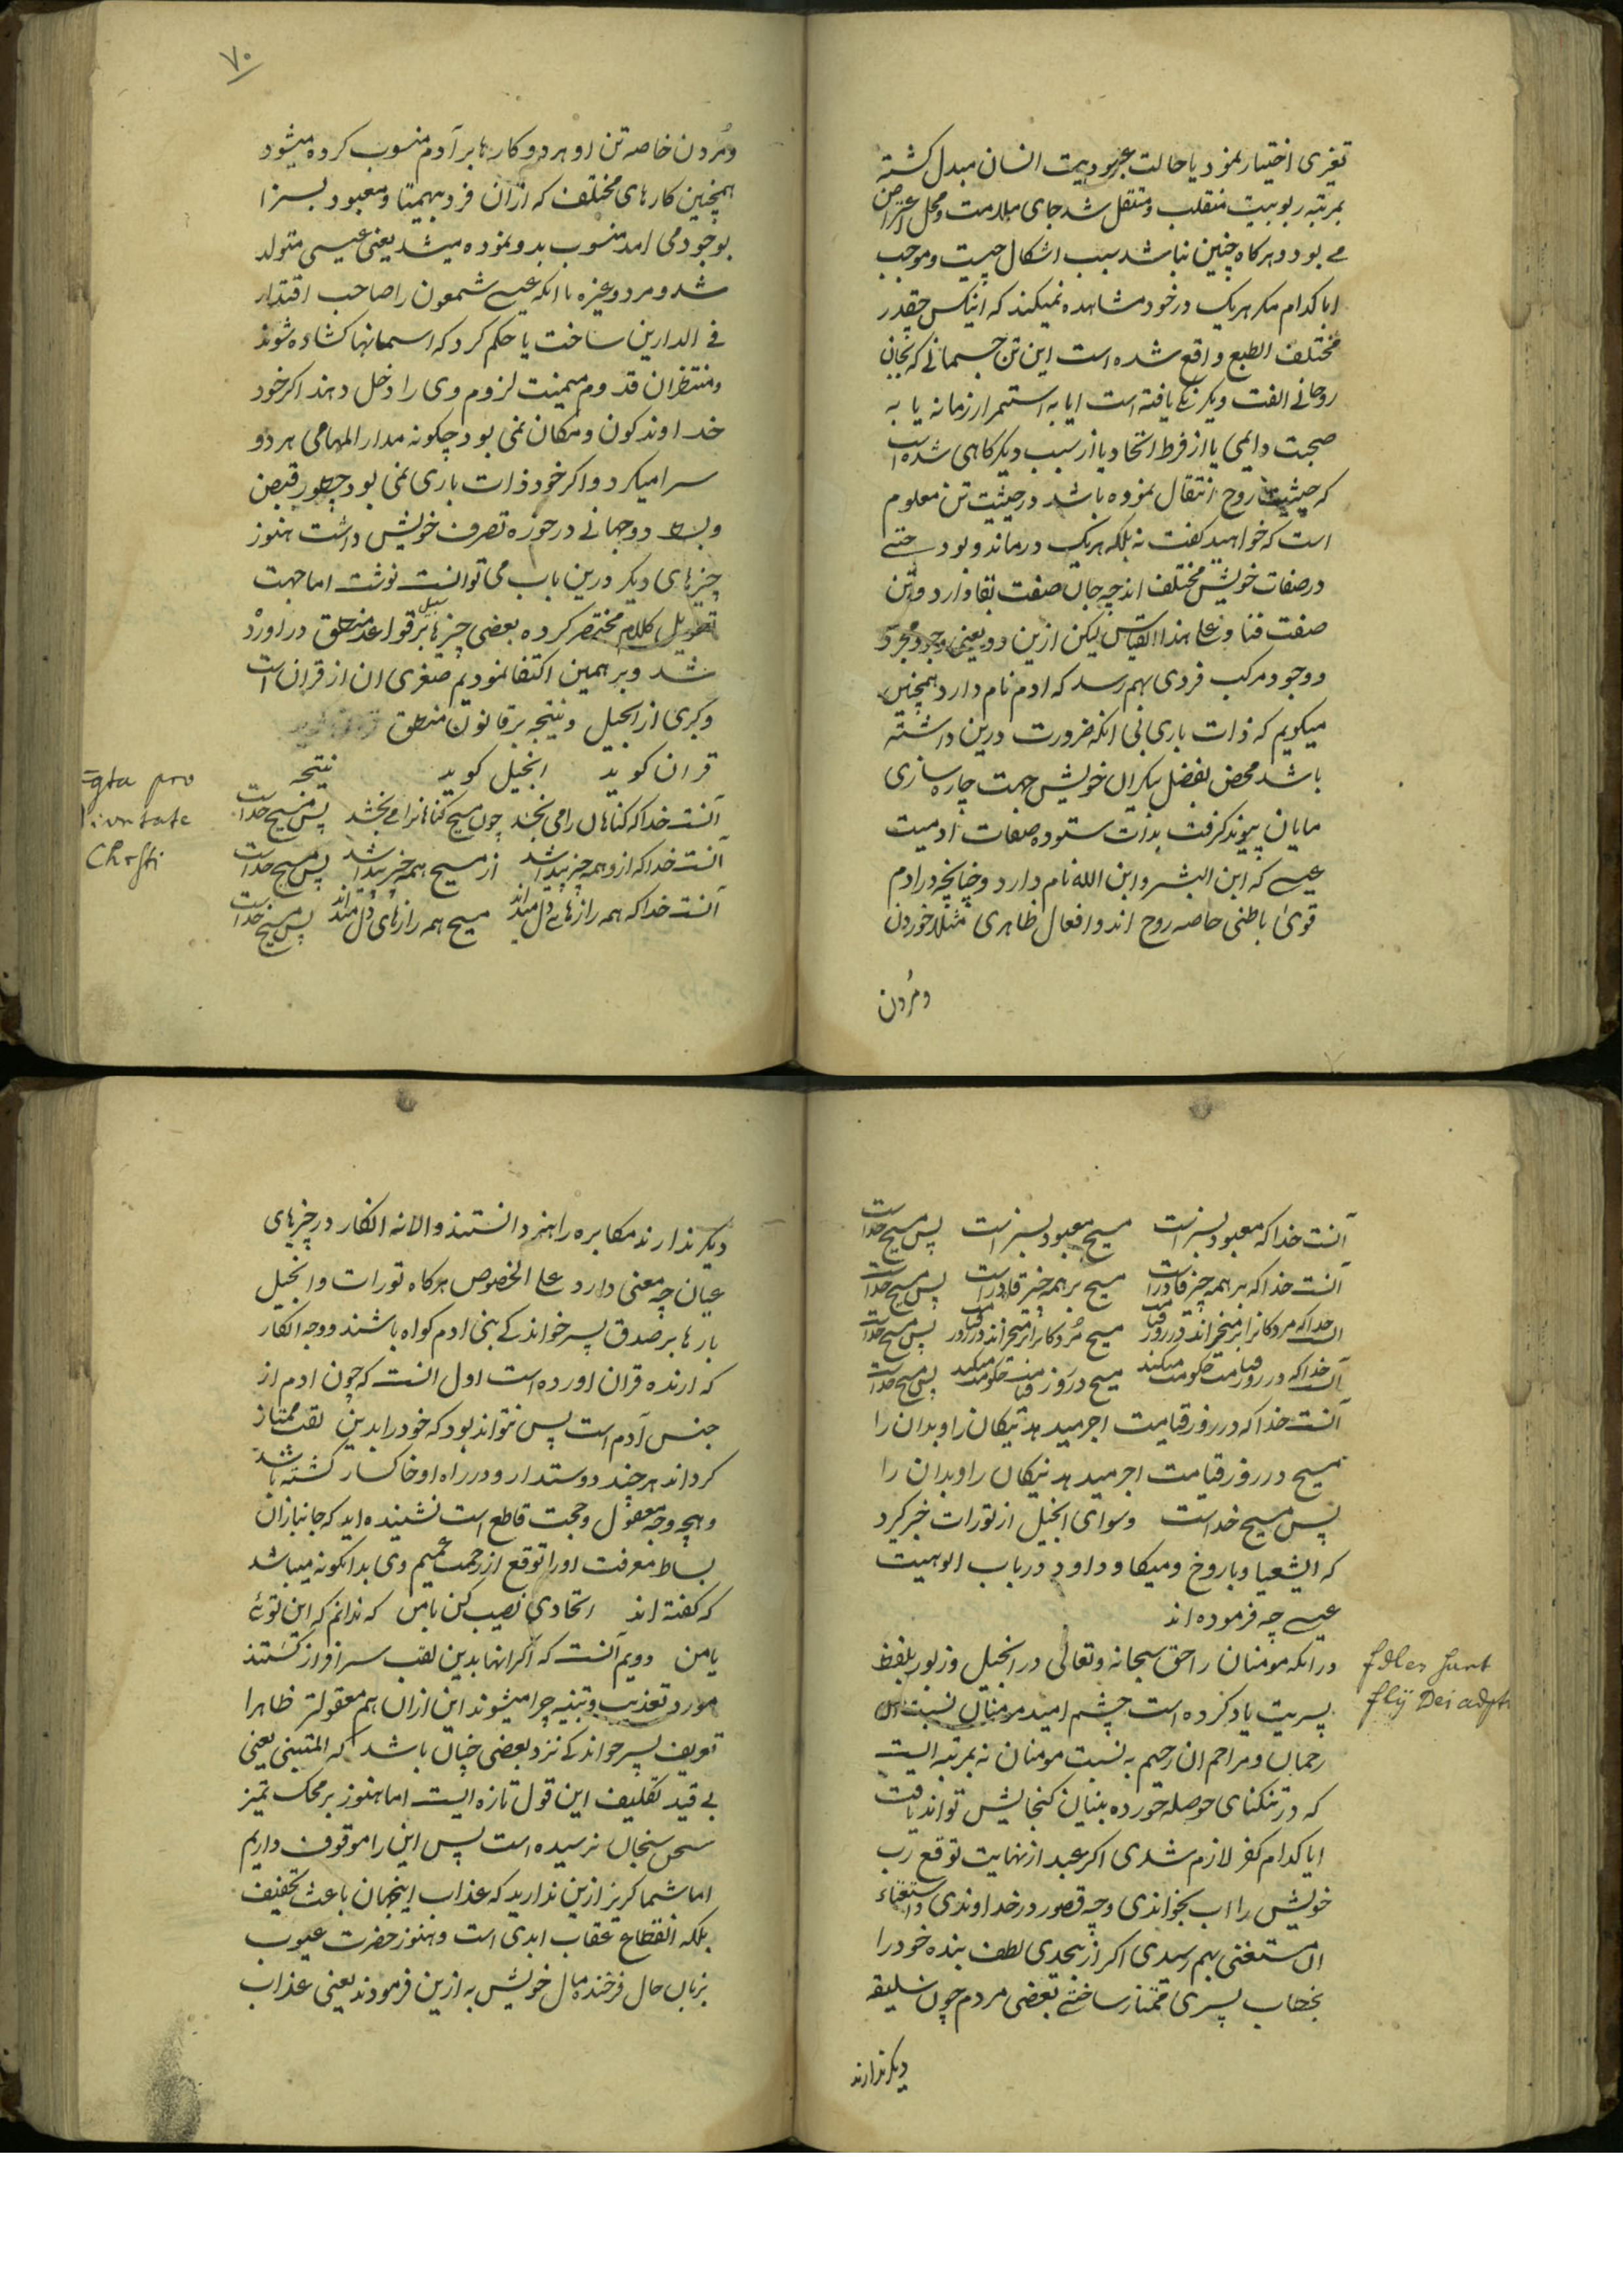 تغیری اختیار نمود یا حالت عبودیت انسان مبدل کشته
بمرتبه ربوبیت منقلب و منتقل شد جای ملامت و محل اعتراض
می بود و هرکاه چنین نباشد سبب اشکال چیست و موجب
ابا کدام مکر هریک در خود مشاهده نمیکند که اینکس چقدر
مختلف الطبع واقع شده است این تن جسمانی که بجان
روحانی الفت و یکرنکی یافته است ایا به استمرار زمانه یا به
صحبت دایمی یا از فرط اتحاد یا از سبب دیکر کاهی شده است
که حیثیت روح انتقال نموده باشد در حیثیت تن معلوم
است که خواهید کفت نه بلکه هریک درماند و بود
در صفات خویش مختلف اند چه جان صفت بقا دارد و تن
صفت فنا و علی هذا القیاس لیکن ازین دو یعنی وجود مجرد
و وجود مرکب فردی بهم رسد که ادم نام دارد همچنین
میکویم که ذات باری بی انکه ضرورت درین داشته
باشد محض بفضل بیکران خویش جهت چاره سازی
مایان پیوند کرفت بذات ستوده صفات ادمیت
عیسی که ابن البشر و ابن الله نام دارد و چنانچه در ادم
قوی باطنی خاصه روح اند و افعال ظاهری مثلا خوردن
و مُردن
۷۰
و مُردن خاصه تن او هر دو کارها بر آدم منسوب کرده میشود
همچنین کارهای مختلف که ازان فرد بیهمتا و معبود بسزا
بوجود می امد منسوب بدو نموده میشد یعنی عیسی متولد
شد و مرد و غیره با انکه عیسی شمعون را صاحب اقتدار
فی الدارین ساخت یا حکم کرد که اسمانها کشاده شوند
و منتظران قدوم میمنت لزوم وی را دخل دهند اکر خود
خداوند کون و مکان نمی بود چکونه مدار المهامی هر دو
سرا میکرد و اکر خود ذات باری نمی بود چطور قبض
و بسط دو جهانی در حوزه تصرف خویش داشت هنوز
چیزهای دیکر درین باب می توانست نوشت اما جهت
تطویل کلام مختصر کرده بعضی چیزها بر سبیل قواعد منطق دراورده
شد و بر همین اکتفا نمودیم صغری ان از قران است
و کبری از انجیل و نتیجه بر قانون منطق
قران کوید انجیل کوید نتیجه
آنست خدا که کناهان را می بخشد چون مسیح کناهانرا می بخشد پس مسیح خداست
آنست خدا که ازو همه چیز پیدا شد از مسیح همه چیز پیدا شد پس مسیح خداست
آنست خدا که همه رازهای دل میداند مسیح همه رازهای دل میداند پس مسیح خداست
pro
Chrsti
آنست خدا که معبود بسزاست مسیح معبود بسزاست پس مسیح خداست
آنست خدا که بر همه چیز قادر است مسیح بر همه چیز قادر است پس مسیح خداست
آنست خدا که مردکانرا برمیخیزاند در روز قیامت مسیح مُردکانرا برمیخیزاند در روز قیامت پس مسیح خداست
آنست خدا که در روز قیامت حکومت میکند مسیح در روز قیامت حکومت میکند پس مسیح خداست
آنست خدا که در روز قیامت اجر میدهد نیکان را و بدان را
مسیح در روز قیامت اجر میدهد نیکان را و بدان را
پس مسیح خداست و سوای انجیل از تورات خبر کیرد
که الیشعیا و باروخ و میکا و داود در باب الوهیت
عیسی چه فرموده اند
در انکه مومنان را حق سبحانه و تعالی در انجیل و زبور بلفظ
پسریت یاد کرده است چشم امید مومنان نسبت ان
رحمان و مراحم ان رحیم به نسبت مومنان نه بمرتبه ایست
که در تنکنای حوصله خورده بینان کنجایش تواند یافت
ایا کدام کفر لازم شدی اکر عبد از نهایت توقع رب
خویش را اب بخواندی و چه قصور در خداوندی و استغناء
ان مستغنی بهم رسیدی اکر از بیحدی لطف بنده خود را
بخطاب پسری ممتاز ساختی بعضی مردم چون سلیقه
دیکر ندارند
fdles sunt
flij Dei adpt
دیکر ندارند مکابره را هنر دانستند والا نه انکار در چیزهای
عیان چه معنی دارد علی الخصوص هرکاه تورات و انجیل
بارها بر صدق پسر خواندکی بنی ادم کواه باشند و وجه انکار
که ارنده قران اورده است اول انست که چون ادم از
جنس آدم است پس نتواند بود که خود را بدین لقب ممتاز
کرداند هرچند دوستدار و در راه او خاکسار کشته باشد
و هیچ وجه معقول و حجت قاطع است نشنیده اید که جانبازان
بساط معرفت او را توقع از رحمت عمیم وی بدانکونه میباشد
که کفته اند اتحادی نصیب کن با من که ندانم که این توئی
یا من دویم آنست که اکر انها بدین لقب سرافراز کشتند
مورد تعذیب و تنبیه چرا میشوند این ازان هم معقولتر ظاهرا
تعریف پسر خواندکی نزد بعضی خیال باشد که المتبنی یعنی
بی قید تکلیف این قول تازه ایست اما هنوز بر محک تمیز
سخن سنجان نرسیده است پس این را موقوف داریم
اما شما کریز ازین ندارید که عذاب اینجهان باعث تخفیف
بلکه انقطاع عقاب ابدی است و هنوز حضرت عیوب
بزبان حال فرخنده مال خویش به ازین فرمودند یعنی عذاب